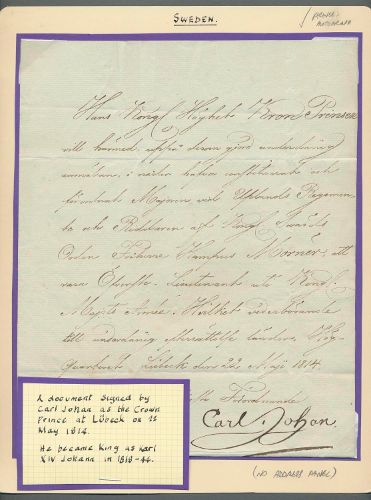 SWEDEN.
Hans Kongl Höghet Kron Prinsen
vill härmed uppå derom gjord underdånig
anmälan, i nåder hafva
förordnat Majoren vid Uplands Regemen-
te och Riddaren af Kongl Svärds
Orden Friherre Hampus Mörner, att
vara Öfverste-Lieutenant uti Kongl.
Majts Armée. Hvilket vederbörande
till underdånig efterrättelse länder. Hög-
Quarteret Lübeck den 22 Maji 1814.
Carl Johan.
A document signed by
Carl Johan as the Crown
Prince at Lübeck on
May 1814.
He became King as Karl
XIV Johann in 1818-44.
(NO ADDRESS PANEL)